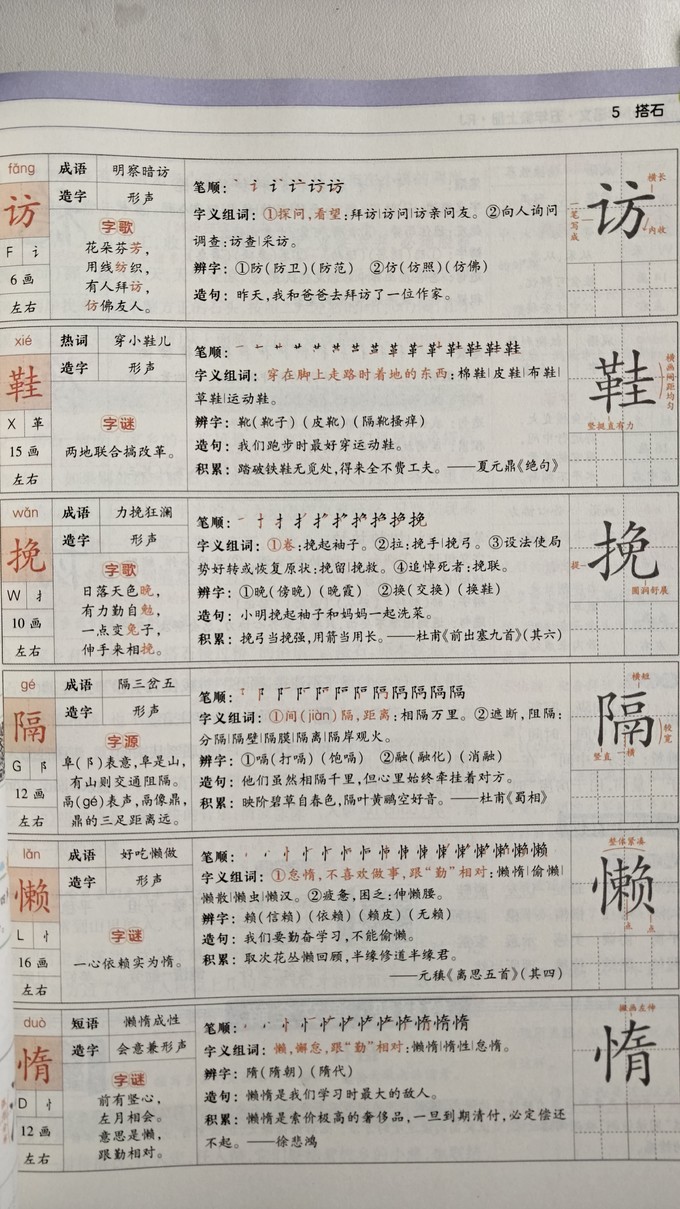 5 搭石
fǎng
访
F 讠
6画
左右
成语 明察暗访
造字 形声
字歌
花朵芬芳，
用线纺织，
有人拜访，
仿佛友人。
笔顺：
字义组词：①探问，看望：拜访|访问|访亲问友。②向人询问
调查：访查|采访。
辨字：①防(防卫)(防范) ②仿(仿照)(仿佛)
造句：昨天，我和爸爸去拜访了一位作家。
访
横长
一笔写成
内收
xié
鞋
X 革
15画
左右
热词 穿小鞋儿
造字 形声
字谜
两地联合搞改革。
笔顺：
字义组词：穿在脚上走路时着地的东西：棉鞋|皮鞋|布鞋|
草鞋|运动鞋。
辨字：靴(靴子)(皮靴)(隔靴搔痒)
造句：我们跑步时最好穿运动鞋。
积累：踏破铁鞋无觅处，得来全不费工夫。——夏元鼎《绝句》
鞋
横画间距均匀
竖挺直有力
wǎn
挽
W 扌
10画
左右
成语 力挽狂澜
造字 形声
字歌
日落天色晚，
有力勤自勉，
一点变兔子，
伸手来相挽。
笔顺：
字义组词：①卷：挽起袖子。②拉：挽手|挽弓。③设法使局
势好转或恢复原状：挽留|挽救。④追悼死者：挽联。
辨字：①晚(傍晚)(晚霞) ②换(交换)(换鞋)
造句：小明挽起袖子和妈妈一起洗菜。
积累：挽弓当挽强，用箭当用长。——杜甫《前出塞九首》(其六)
挽
提
圆润舒展
gé
隔
G 阝
12画
左右
成语 隔三岔五
造字 形声
字源
阜(阝)表意，阜是山，
有山则交通阻隔。
鬲(gé)表声，鬲像鼎，
鼎的三足距离远。
笔顺：
字义组词：①间(jiàn)隔，距离：相隔万里。②遮断，阻隔：
分隔|隔壁|隔膜|隔离|隔岸观火。
辨字：①嗝(打嗝)(饱嗝) ②融(融化)(消融)
造句：他们虽然相隔千里，但心里始终牵挂着对方。
积累：映阶碧草自春色，隔叶黄鹂空好音。——杜甫《蜀相》
隔
横短
较宽
竖直 一横
lǎn
懒
L 忄
16画
左右
成语 好吃懒做
造字 形声
字谜
一心依赖实为惰。
笔顺：
字义组词：①怠惰，不喜欢做事，跟“勤”相对：懒惰|偷懒|
懒散|懒虫|懒汉。②疲惫，困乏：伸懒腰。
辨字：赖(信赖)(依赖)(赖皮)(无赖)
造句：我们要勤奋学习，不能偷懒。
积累：取次花丛懒回顾，半缘修道半缘君。
——元稹《离思五首》(其四)
懒
整体紧凑
点 点
duò
惰
D 忄
12画
左右
短语 懒惰成性
造字 会意兼形声
字谜
前有坚心，
左月相会。
意思是懒，
跟勤相对。
笔顺：
字义组词：懒，懈怠，跟“勤”相对：懒惰|惰性|怠惰。
辨字：隋(隋朝)(隋代)
造句：懒惰是我们学习时最大的敌人。
积累：懒惰是索价极高的奢侈品，一旦到期清付，必定偿还
不起。——徐悲鸿
惰